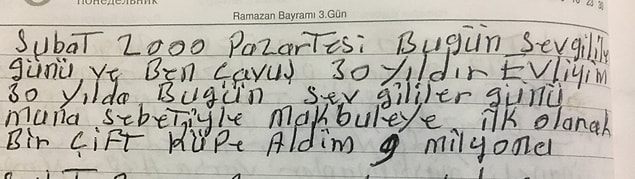 ПОНЕДЕЛЬНИК
Ramazan Bayramı 3.Gün
Şubat 2000 Pazartesi Bugün Sevgilile
günü ve Ben Çavuş 30 yıldır Evliyim
30 yılda Bugün sevgililer günü
muna sebetiyle makbuleye ilk olarak
Bir Çift Küpe Aldım 9 milyona